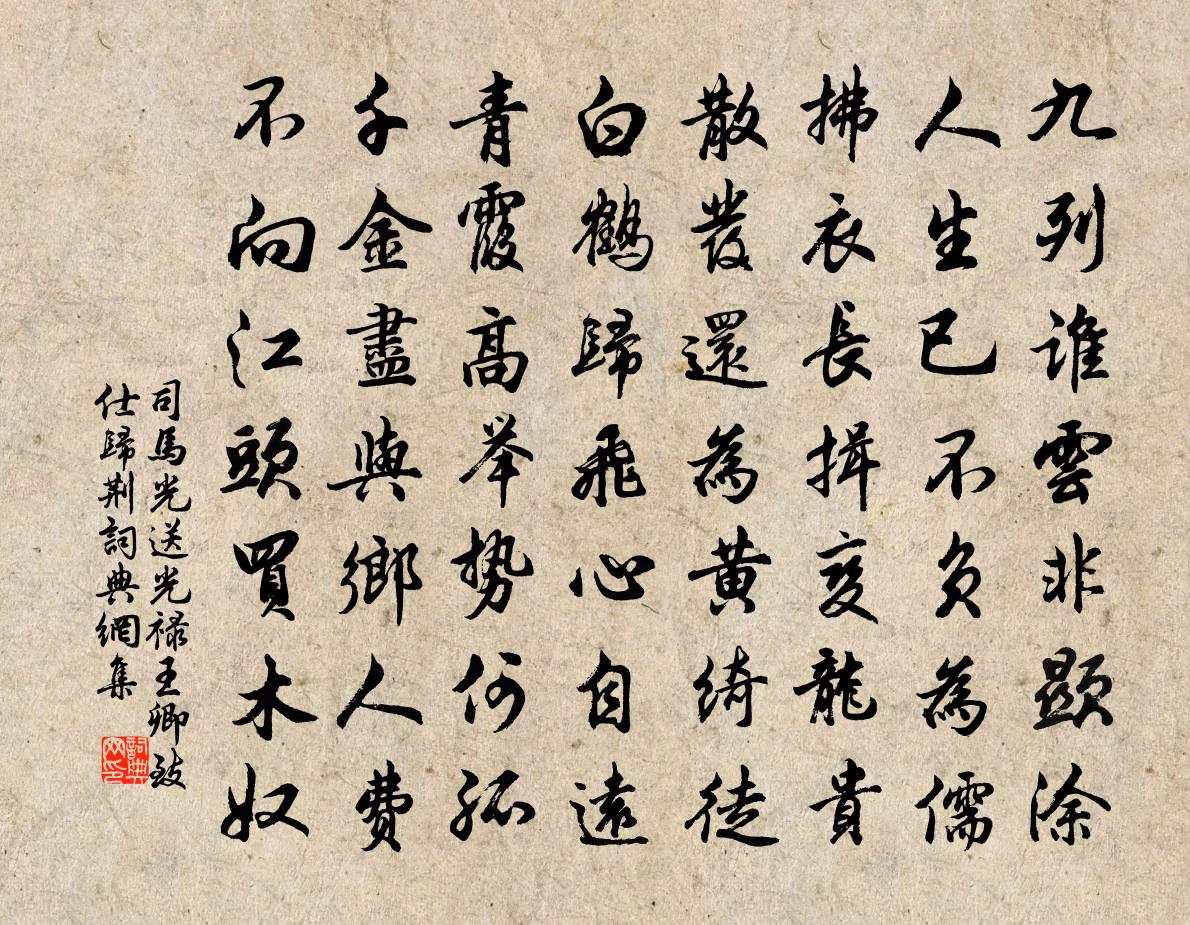 九列誰雲非顯涂
人生已不負為儒
拂衣長揖變龍貴
散發還為黃綺徒
白鶴歸飛心自遠
青霞高举勢何孤
千金盡與鄉人費
不向江頭買木奴
司馬光送光禄王卿致
仕歸荆詞典網集
詞典
网印